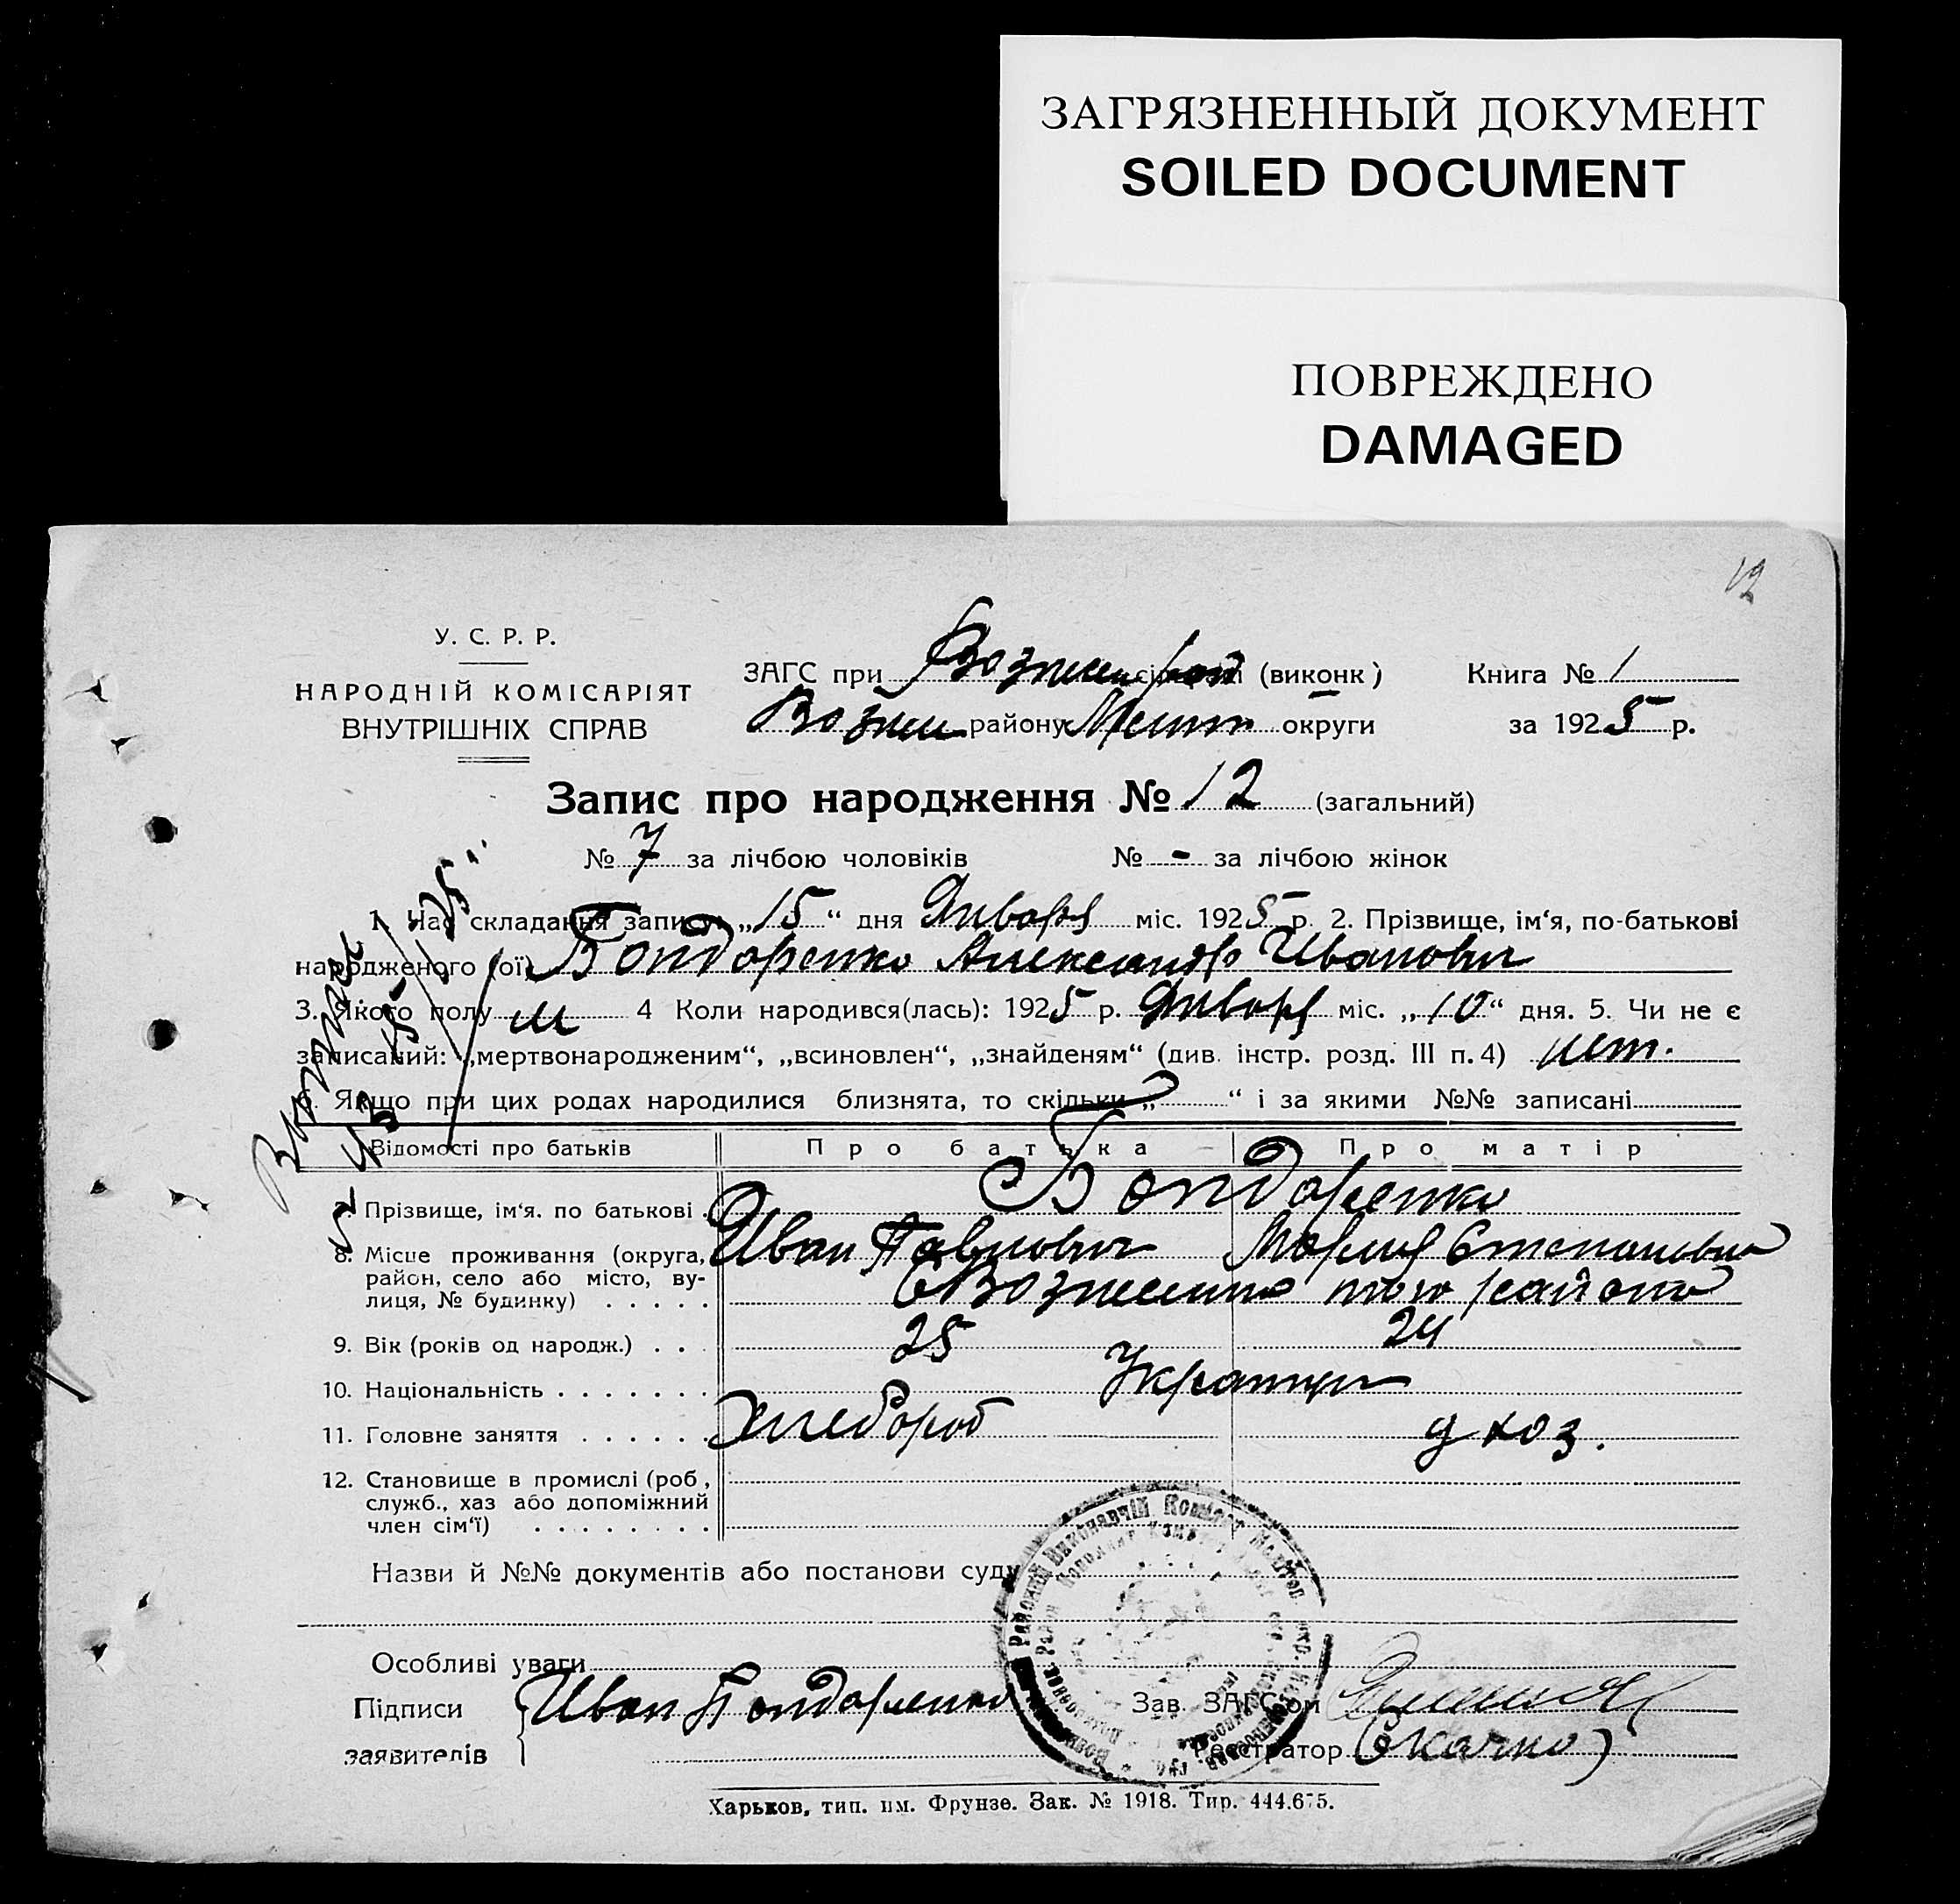 ЗАГРЯЗНЕННЫЙ ДОКУМЕНТ
SOILED DOCUMENT
ПОВРЕЖДЕНО
DAMAGED
12
У. С. Р. Р.
НАРОДНІЙ КОМІСАРІЯТ
ВНУТРІШНІХ СПРАВ
ЗАГС при (виконк) Книга № 1
Возне району Мелит округи за 1925 р.
Запис про народження № 12 (загальний)
№ 7 за лічбою чоловіків № - за лічбою жінок
1. Час складання запису „15“ дня Января міс. 1925 р. 2. Прізвище, ім‘я, по-батькові
народженого (ої) Бондаренко Александр Иванович
3. Якого полу м 4 Коли народився(лась): 1925 р. Января міс. „10“ дня. 5. Чи не є
записаний: „мертвонародженим“, „всиновлен“, „знайденям“ (див. інстр. розд. III п. 4) нет.
6. Якщо при цих родах народилися близнята, то скільки „ “ і за якими №№ записані
Відомості про батьків Про батька Про матір
Бондаренко
7. Прізвище, ім‘я. по батькові . Иван Павлович Мария Степановна
8. Місце проживання (округа, район, село або місто, ву- лиця, № будинку) . . . . . с Вознесенка того района
9. Вік (років од народж.) . . . 25 24
10. Національність . . . . . . . Украинцы
11. Головне заняття . . . . . . Хлебороб д хоз.
12. Становище в промислі (роб,
служб., хаз або допоміжний
член сім‘ї) . . . . . . . .
Назви й №№ документів або постанови суду
Особливі уваги
Підписи Иван Бондаренко Зав. ЗАГС‘ом
заявителів Реєстратор (Скачко)
Харьков, тип. им. Фрунзе. Зак. № 1918. Тир. 444.675.